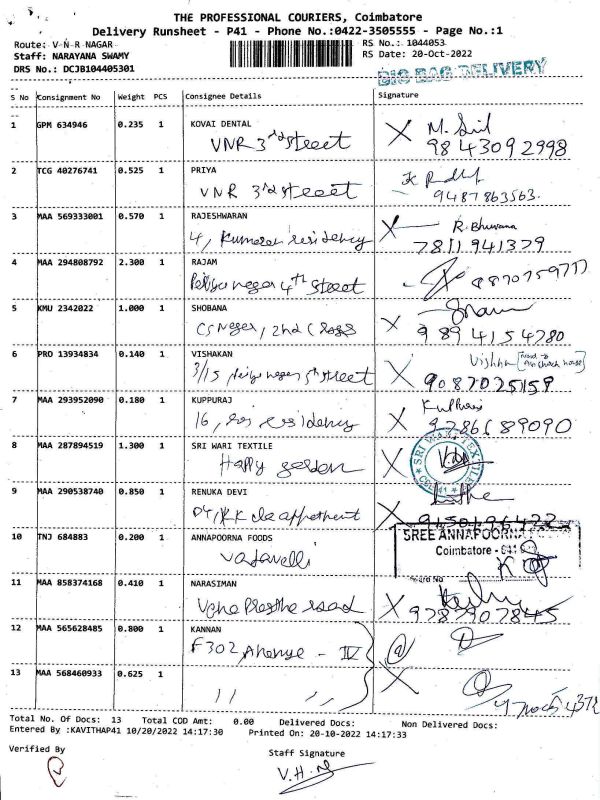 THE PROFESSIONAL COURIERS, Coimbatore
Delivery Runsheet - P41 - Phone No.:0422-3505555 - Page No.:1
Route: V N R NAGAR
RS No.: 1044053
Staff: NARAYANA SWAMY
RS Date: 20-Oct-2022
DRS No.: DCJB104405301
BIG BAG DELIVERY
S No Consignment No Weight PCS Consignee Details Signature
1 GPM 634946 0.235 1 KOVAI DENTAL
VNR 3rd street
9843092998
2 TCG 40276741 0.525 1 PRIYA
VNR 3rd street
9487863563.
3 MAA 569333001 0.570 1 RAJESHWARAN
R. Bhuvana
4, Kumaran residency
7811941379
4 MAA 294808792 2.300 1 RAJAM
nagar 4th street
5 KMU 2342022 1.000 1 SHOBANA
CS Nagar, 2nd cross
9894154780
6 PRO 13934834 0.140 1 VISHAKAN
3/15 nagar 5th street
9087025159
7 MAA 293952090 0.180 1 KUPPURAJ
16, residency
9786689090
8 MAA 287894519 1.300 1 SRI WARI TEXTILE
Happy garden
SRI WARI TEXTILE
9 MAA 290538740 0.850 1 RENUKA DEVI
10 TNJ 684883 0.200 1 ANNAPOORNA FOODS
SREE ANNAPOORNA
Coimbatore - 641
Vadavalli
11 MAA 858374168 0.410 1 NARASIMAN
road
9787907845
12 MAA 565628485 0.800 1 KANNAN
F302, - IV
13 MAA 568460933 0.625 1
〃 〃
Total No. Of Docs: 13 Total COD Amt: 0.00 Delivered Docs: Non Delivered Docs:
Entered By :KAVITHAP41 10/20/2022 14:17:30 Printed On: 20-10-2022 14:17:33
Verified By
Staff Signature
V.H.